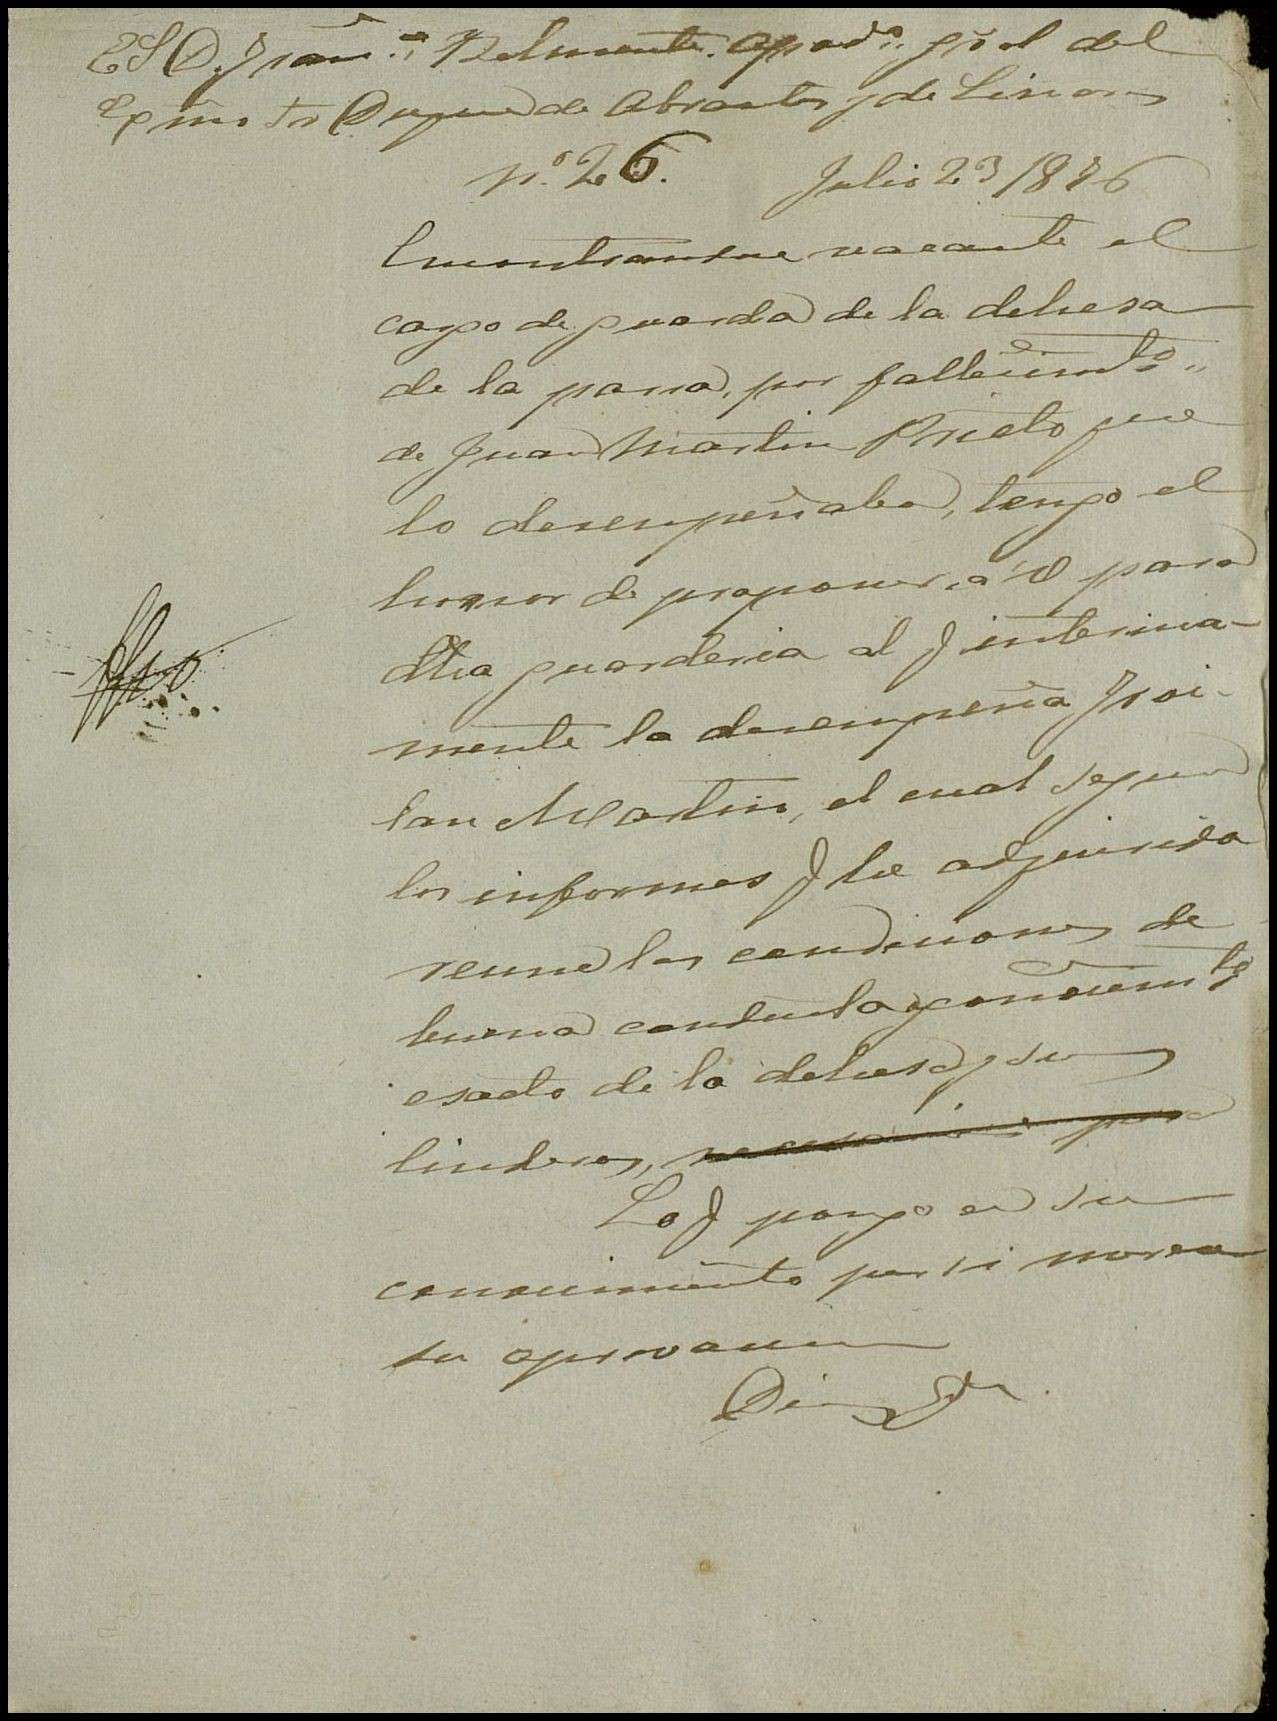 Sr D. Fran.co Belmonte. Apod.o gral del
Exmo Sr Duque de Abrantes y de Linares
n.o 26. Julio 23/876
Encontrandose vacante el
cargo de guarda de la dehesa
de la parra, por fallecimto
de Juan Martin Prieto que
lo desempeñaba, tengo el
honor de proponer a V para
dha guarderia al q interina-
mente la desempeña Froi-
lan Martin, el cual segun
los informes q he adquirido
reune las condiciones de
buena conducta y conocimto
esacto de la dehesa y sus
linderos, necesarios para
Lo q pongo en su
conocimiento por si merece
su aprovacion
Dios